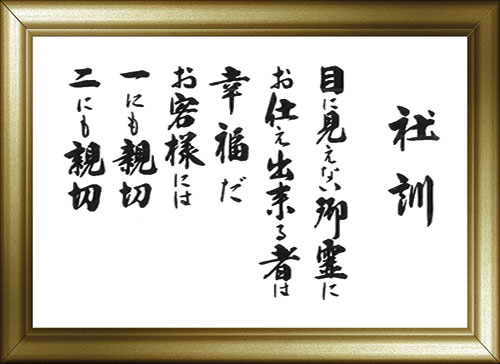 社訓
目に見えない御霊に
お仕え出来る者は
幸福だ
お客様には
一にも親切
二にも親切